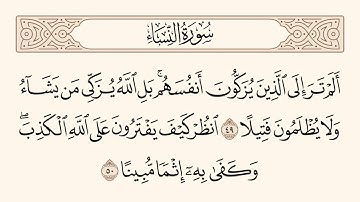 سُورَةُ النِّسَاءِ
أَلَمْ تَرَ إِلَى ٱلَّذِينَ يُزَكُّونَ أَنفُسَهُمۚ بَلِ ٱللَّهُ يُزَكِّي مَن يَشَآءُ
وَلَا يُظْلَمُونَ فَتِيلًا ٤٩ ٱنظُرْ كَيْفَ يَفْتَرُونَ عَلَى ٱللَّهِ ٱلْكَذِبَۖ
وَكَفَىٰ بِهِۦٓ إِثْمًا مُّبِينًا ٥٠